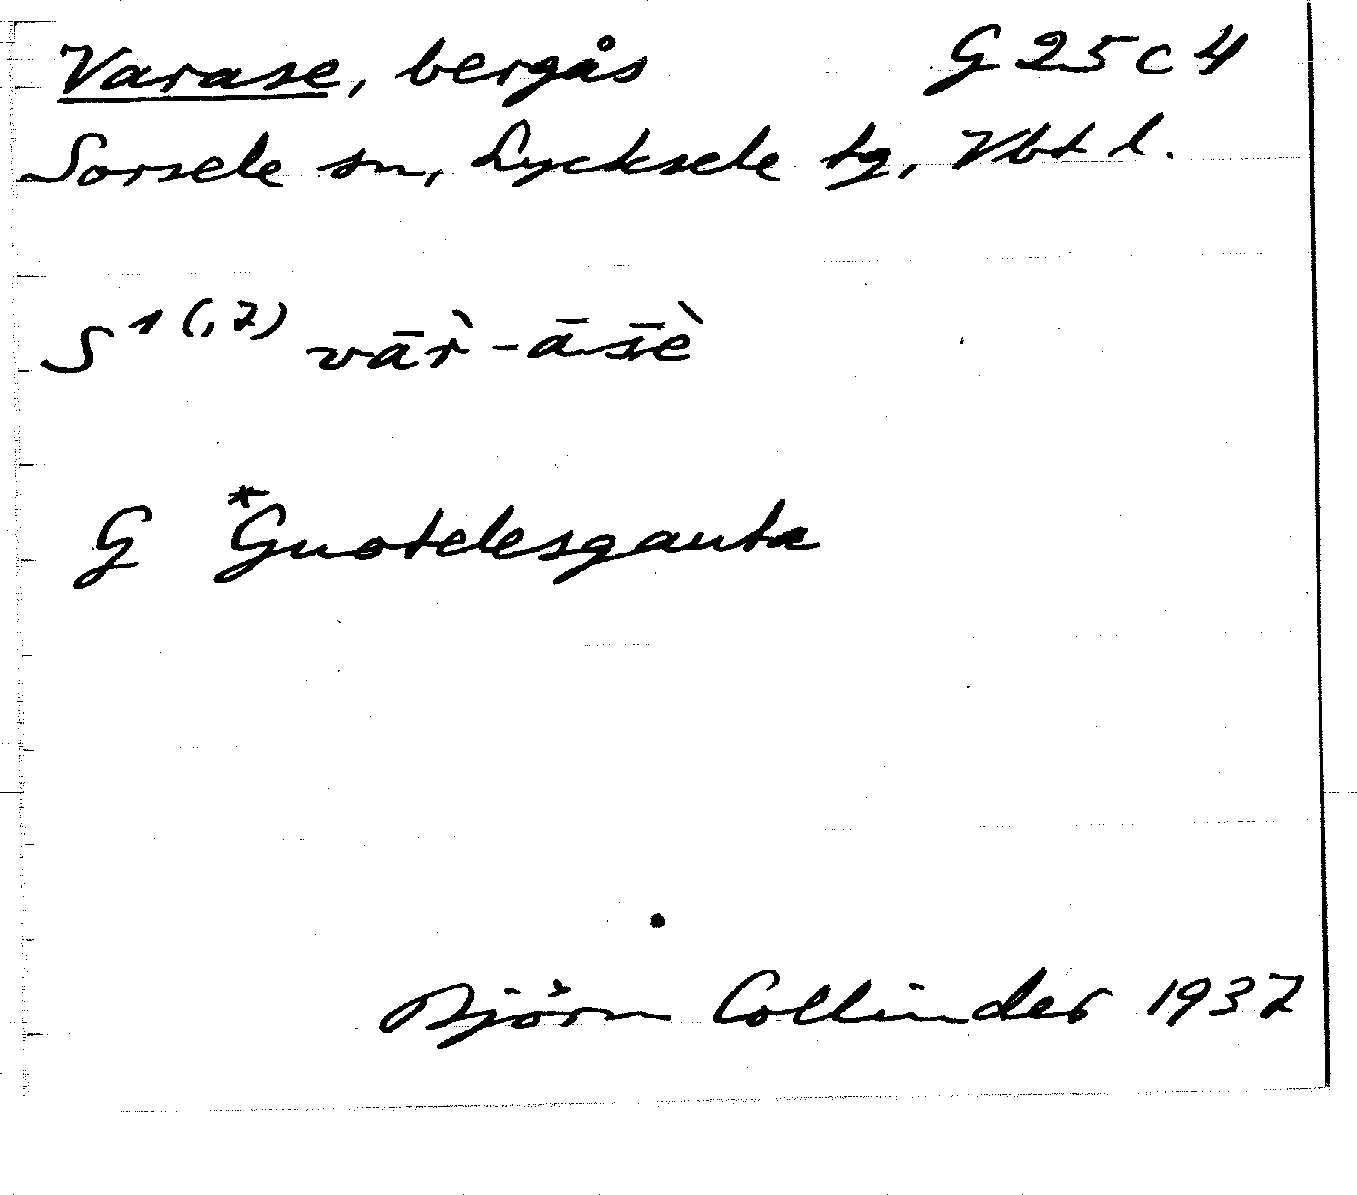 Varase, bergås G 25 c 4
Sorsele sn, Lycksele tg, Vbt l.
S 1(,2) vār̀-ās̄è
G *Guotelesgauta
Björn Collinder 1937